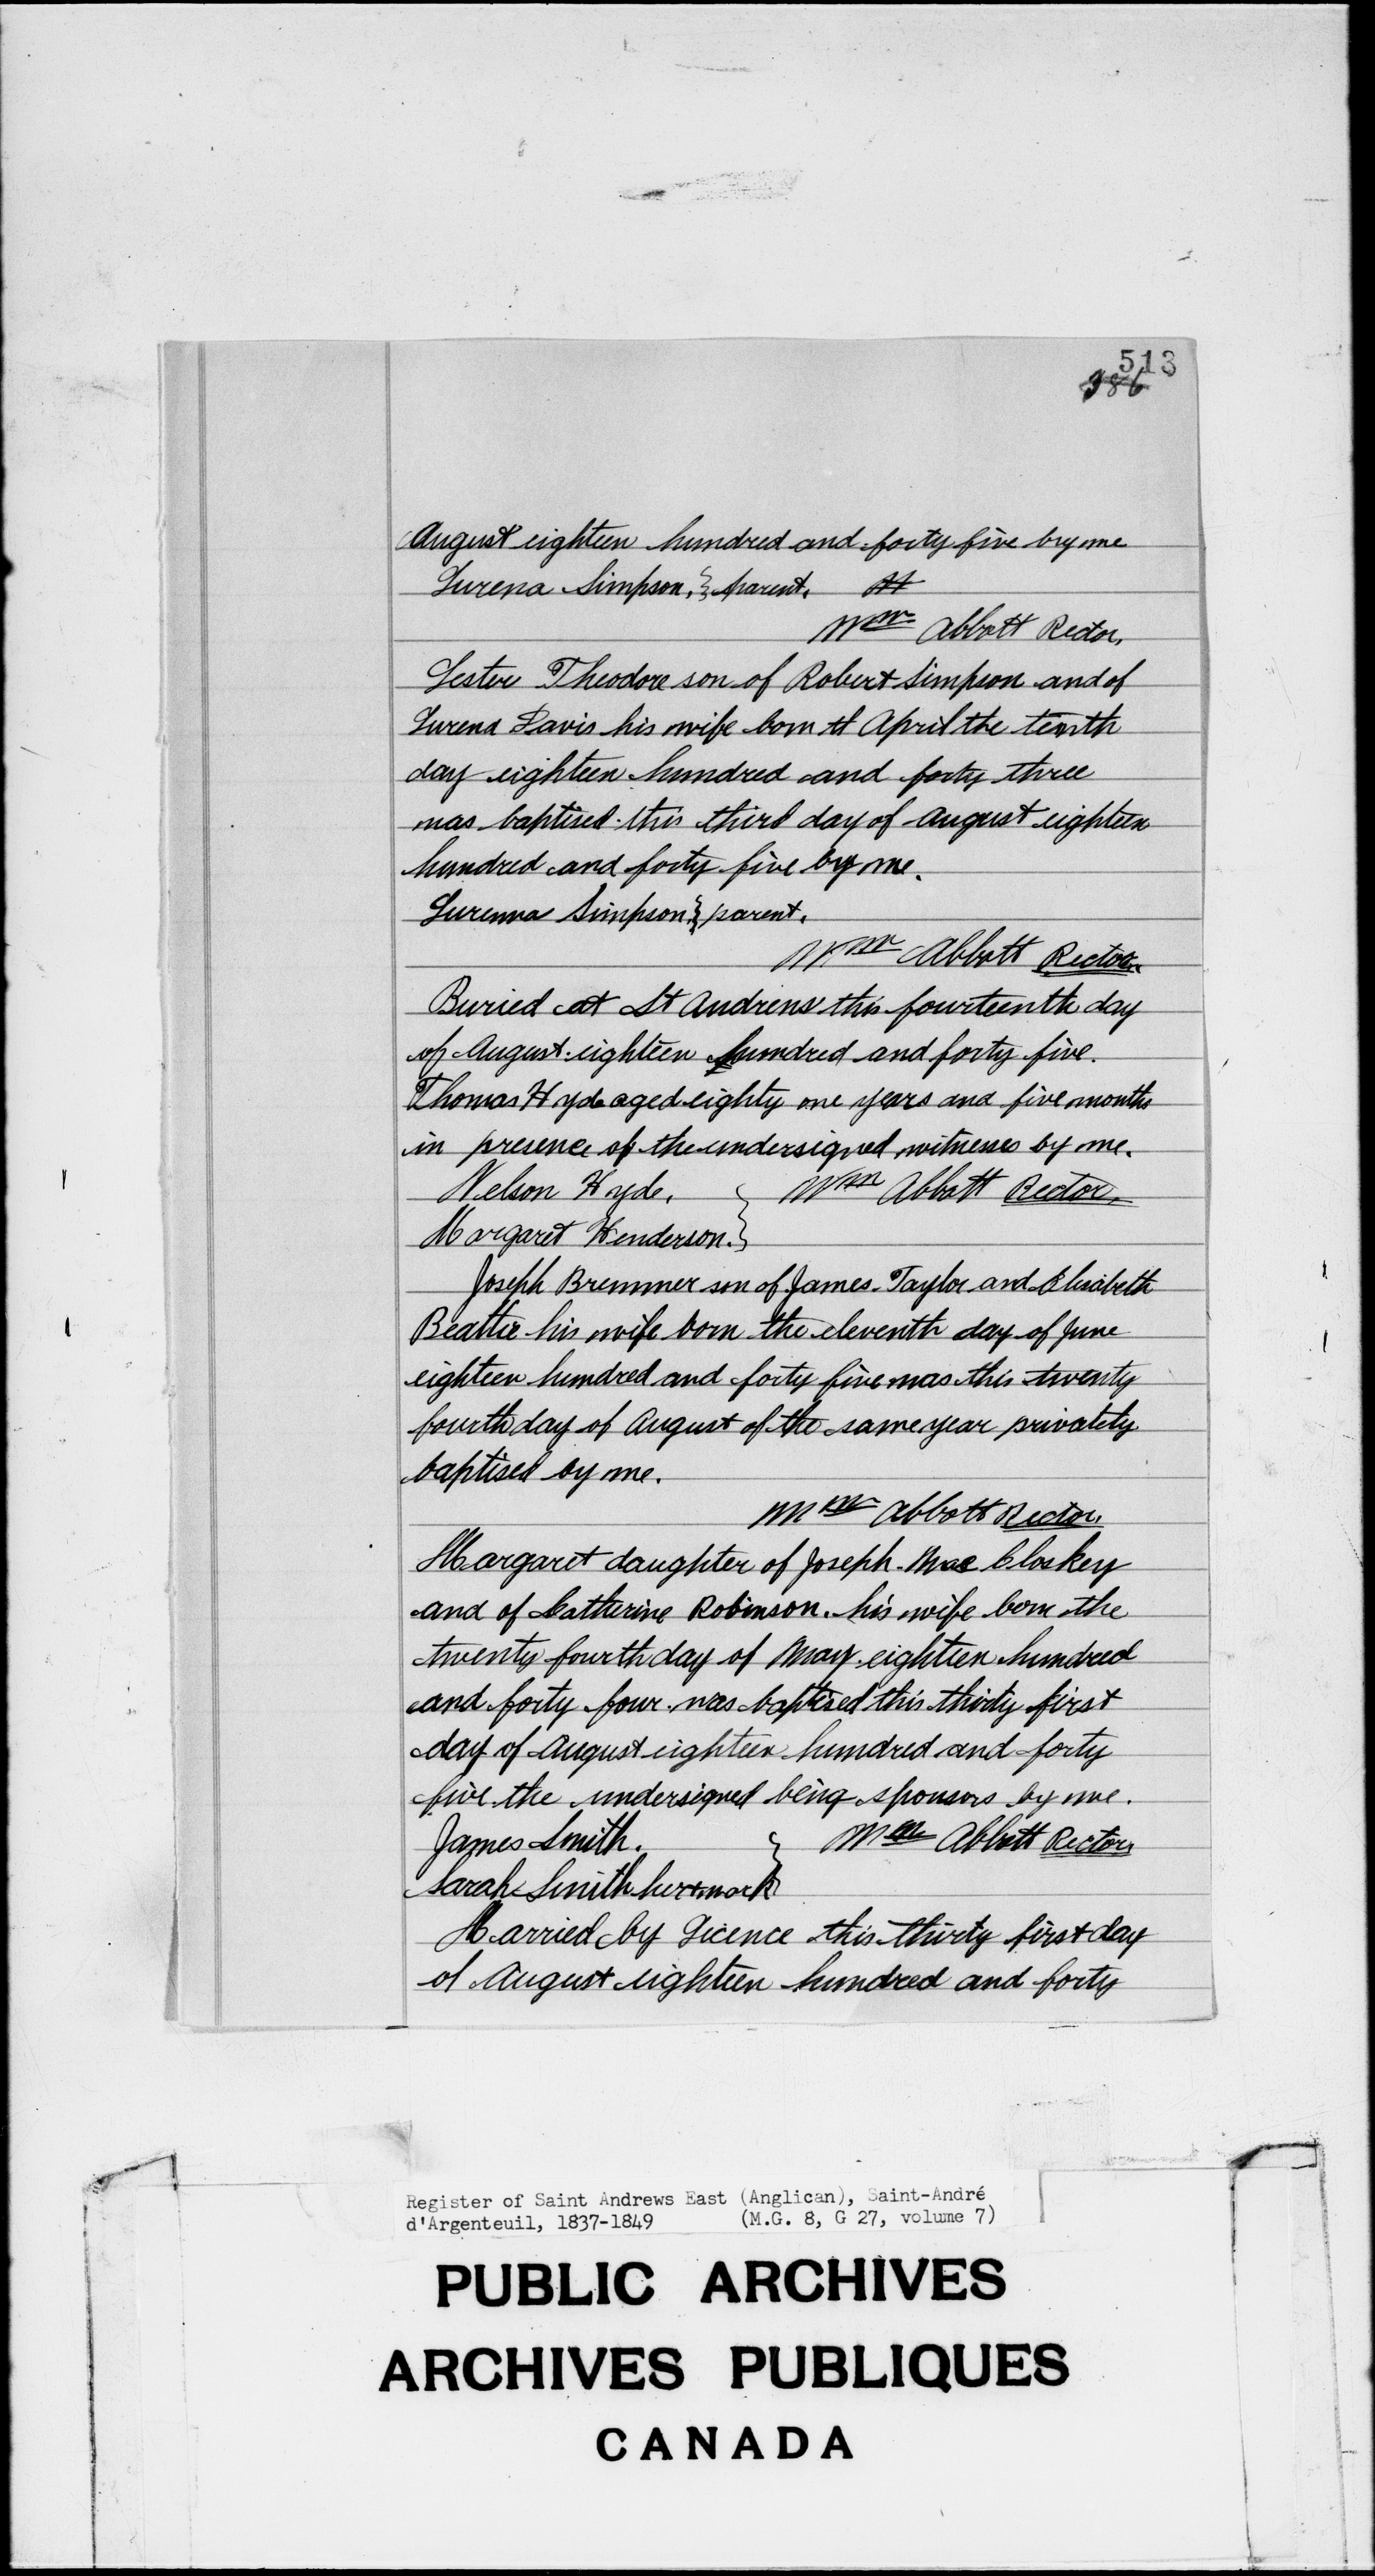 513
386
August eighteen hundred and forty five by me
Lurena Simpson. } parent.
Wm Abbott Rector.
Lester Theodore son of Robert Simpson and of
Lurena Davis his wife born th April the tenth
day eighteen hundred and forty three
was baptised this third day of August eighteen
hundred and forty five by me.
Lurenna Simpson } parent.
Wm Abbott Rector.
Buried at St Andrews this fourteenth day
of August eighteen hundred and forty five.
Thomas Hyde aged eighty one years and five months
in presence of the undersigned witnesses by me.
Nelson Hyde. } Wm Abbott Rector.
Margaret Henderson. }
Joseph Bremmer son of James Taylor and Elisabeth
Beattie his wife born the eleventh day of June
eighteen hundred and forty five was this twenty
fourth day of August of the same year privately
baptised by me.
Wm Abbott Rector.
Margaret daughter of Joseph Mac Closkey
and of Catherine Robinson. his wife born the
twenty fourth day of May eighteen hundred
and forty four was baptised this thirty first
day of August eighteen hundred and forty
five the undersigned being sponsors by me.
James Smith. } Wm Abbott Rector
Sarah Smith her + mark }
Married by Licence this thirty first day
of August eighteen hundred and forty
Register of Saint Andrews East (Anglican), Saint-André
d'Argenteuil, 1837-1849 (M.G. 8, G 27, volume 7)
PUBLIC ARCHIVES
ARCHIVES PUBLIQUES
CANADA